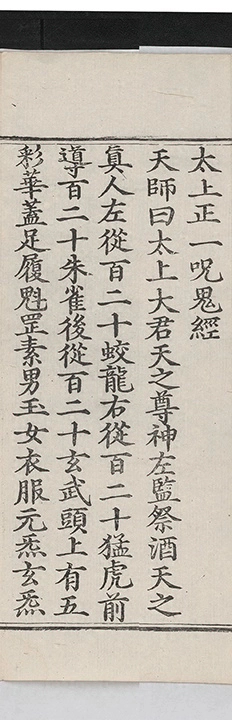 太上正一呪鬼經
天師曰太上大君天之尊神左監祭酒天之
真人左從百二十蛟龍右從百二十猛虎前
導百二十朱雀後從百二十玄武頭上有五
彩華蓋足履魁罡素男玉女衣服元炁玄炁